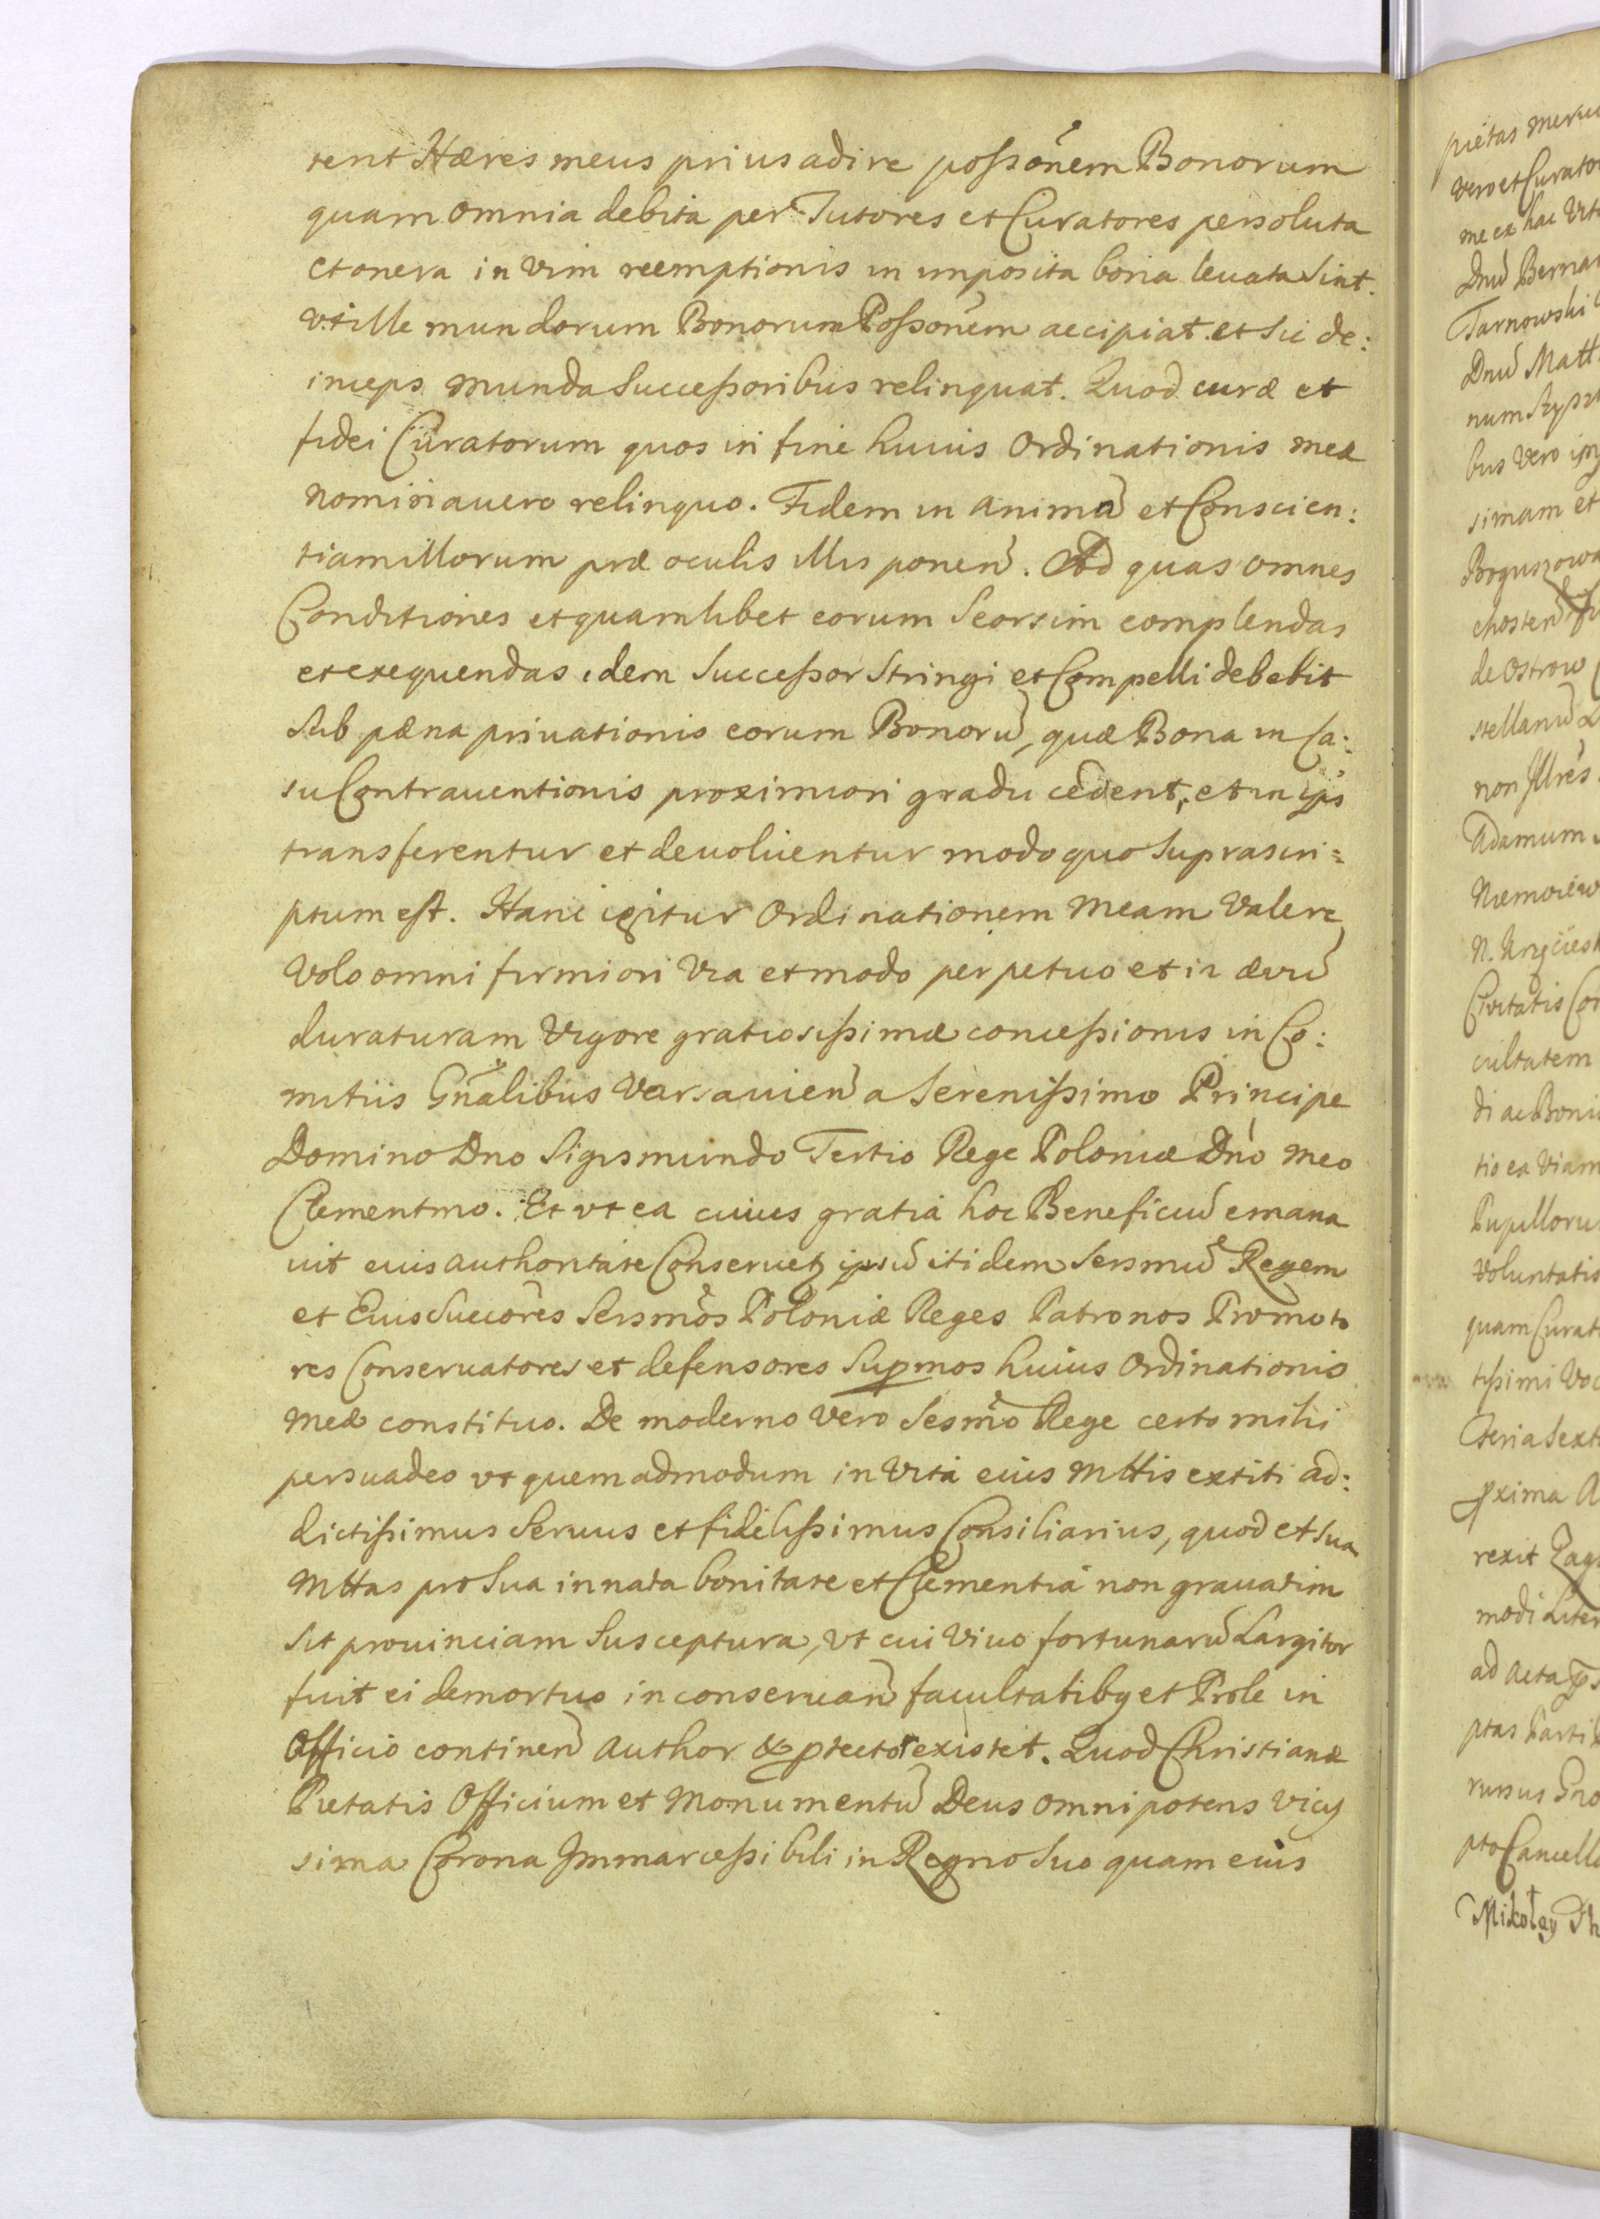 rent Hæres meus prius adire possonem Bonorum
quam omnia debita per Tutores et Curatores persoluta
et onera in vim reemptionis in imposita bona leuata sint.
vt ille mundorum Bonorum Possonem accipiat et sic de:
inceps munda Successoribus relinquat. Quod curæ et
fidei Curatorum quos in fine huius Ordinationis meæ
nominauero relinquo. Fidem in animā et Conscien:
tiam illorum præ oculis illis ponen̄. Ad quas omnes
Conditiones et quamlibet eorum Seorsim complendas
et exequendas idem Successor Stringi et Compelli debebit
sub pæna priuationis eorum Bonorū, quæ Bona in Ca:
su Contrauentionis proximiori gradu cedent, et in ips
transferentur et deuoluentur modo quo suprascri=
ptum est. Hanc igitur Ordinationem Meam Valere
Volo omni firmiori Via et modo perpetuo et in ævū
duraturam Vigore gratiosissimæ concessionis in Co:
mitiis Gnālibus Varsauien̄ a Serenissimo Principe
Domino Dno Sigismundo Tertio Rege Poloniæ Dnō meo
Clementmo. Et vt ea cuius gratia hoc Beneficiū emana
uit eius authoritate Conseruet ipsū itidem Sersmū Regem
et Eius Succōres Sersmōs Poloniæ Reges Patronos Promoto
res Conseruatores et defensores Supmos huius Ordinationis
meæ constituo. De moderno vero Sersmō Rege certo mihi
persuadeo vt quemadmodum in Vita eius Mttis extiti ad:
dictissimus Seruus et fidelissimus Consiliarius, quod et sua
Mttas pro sua innata bonitate et Clementia non grauatim
sit prouinciam Susceptura, vt cui viuo fortunarū Largitor
fuit ei demortuo in conseruan̄ facultatibq et Prole in
Officio continen̄ Author & ptector existet. Quod Christianæ
Pietatis Officium et Monumentū Deus omnipotens Vicis
sima Corona Immarcessibili in Regno suo quam eius
pietas
vero et Curato
me ex hac Vit
Dnū Berna
Tarnowski
Dnū Matt
bus vero
simam et
de Ostrow
Adamum
Ciuitatis
cultatem
tio ea Viam
Pupilloru
Voluntatis
quam Curat
tissimi Voc
feria Sext
rexit
modi Liter
ad Acta
rursus
Mikołay